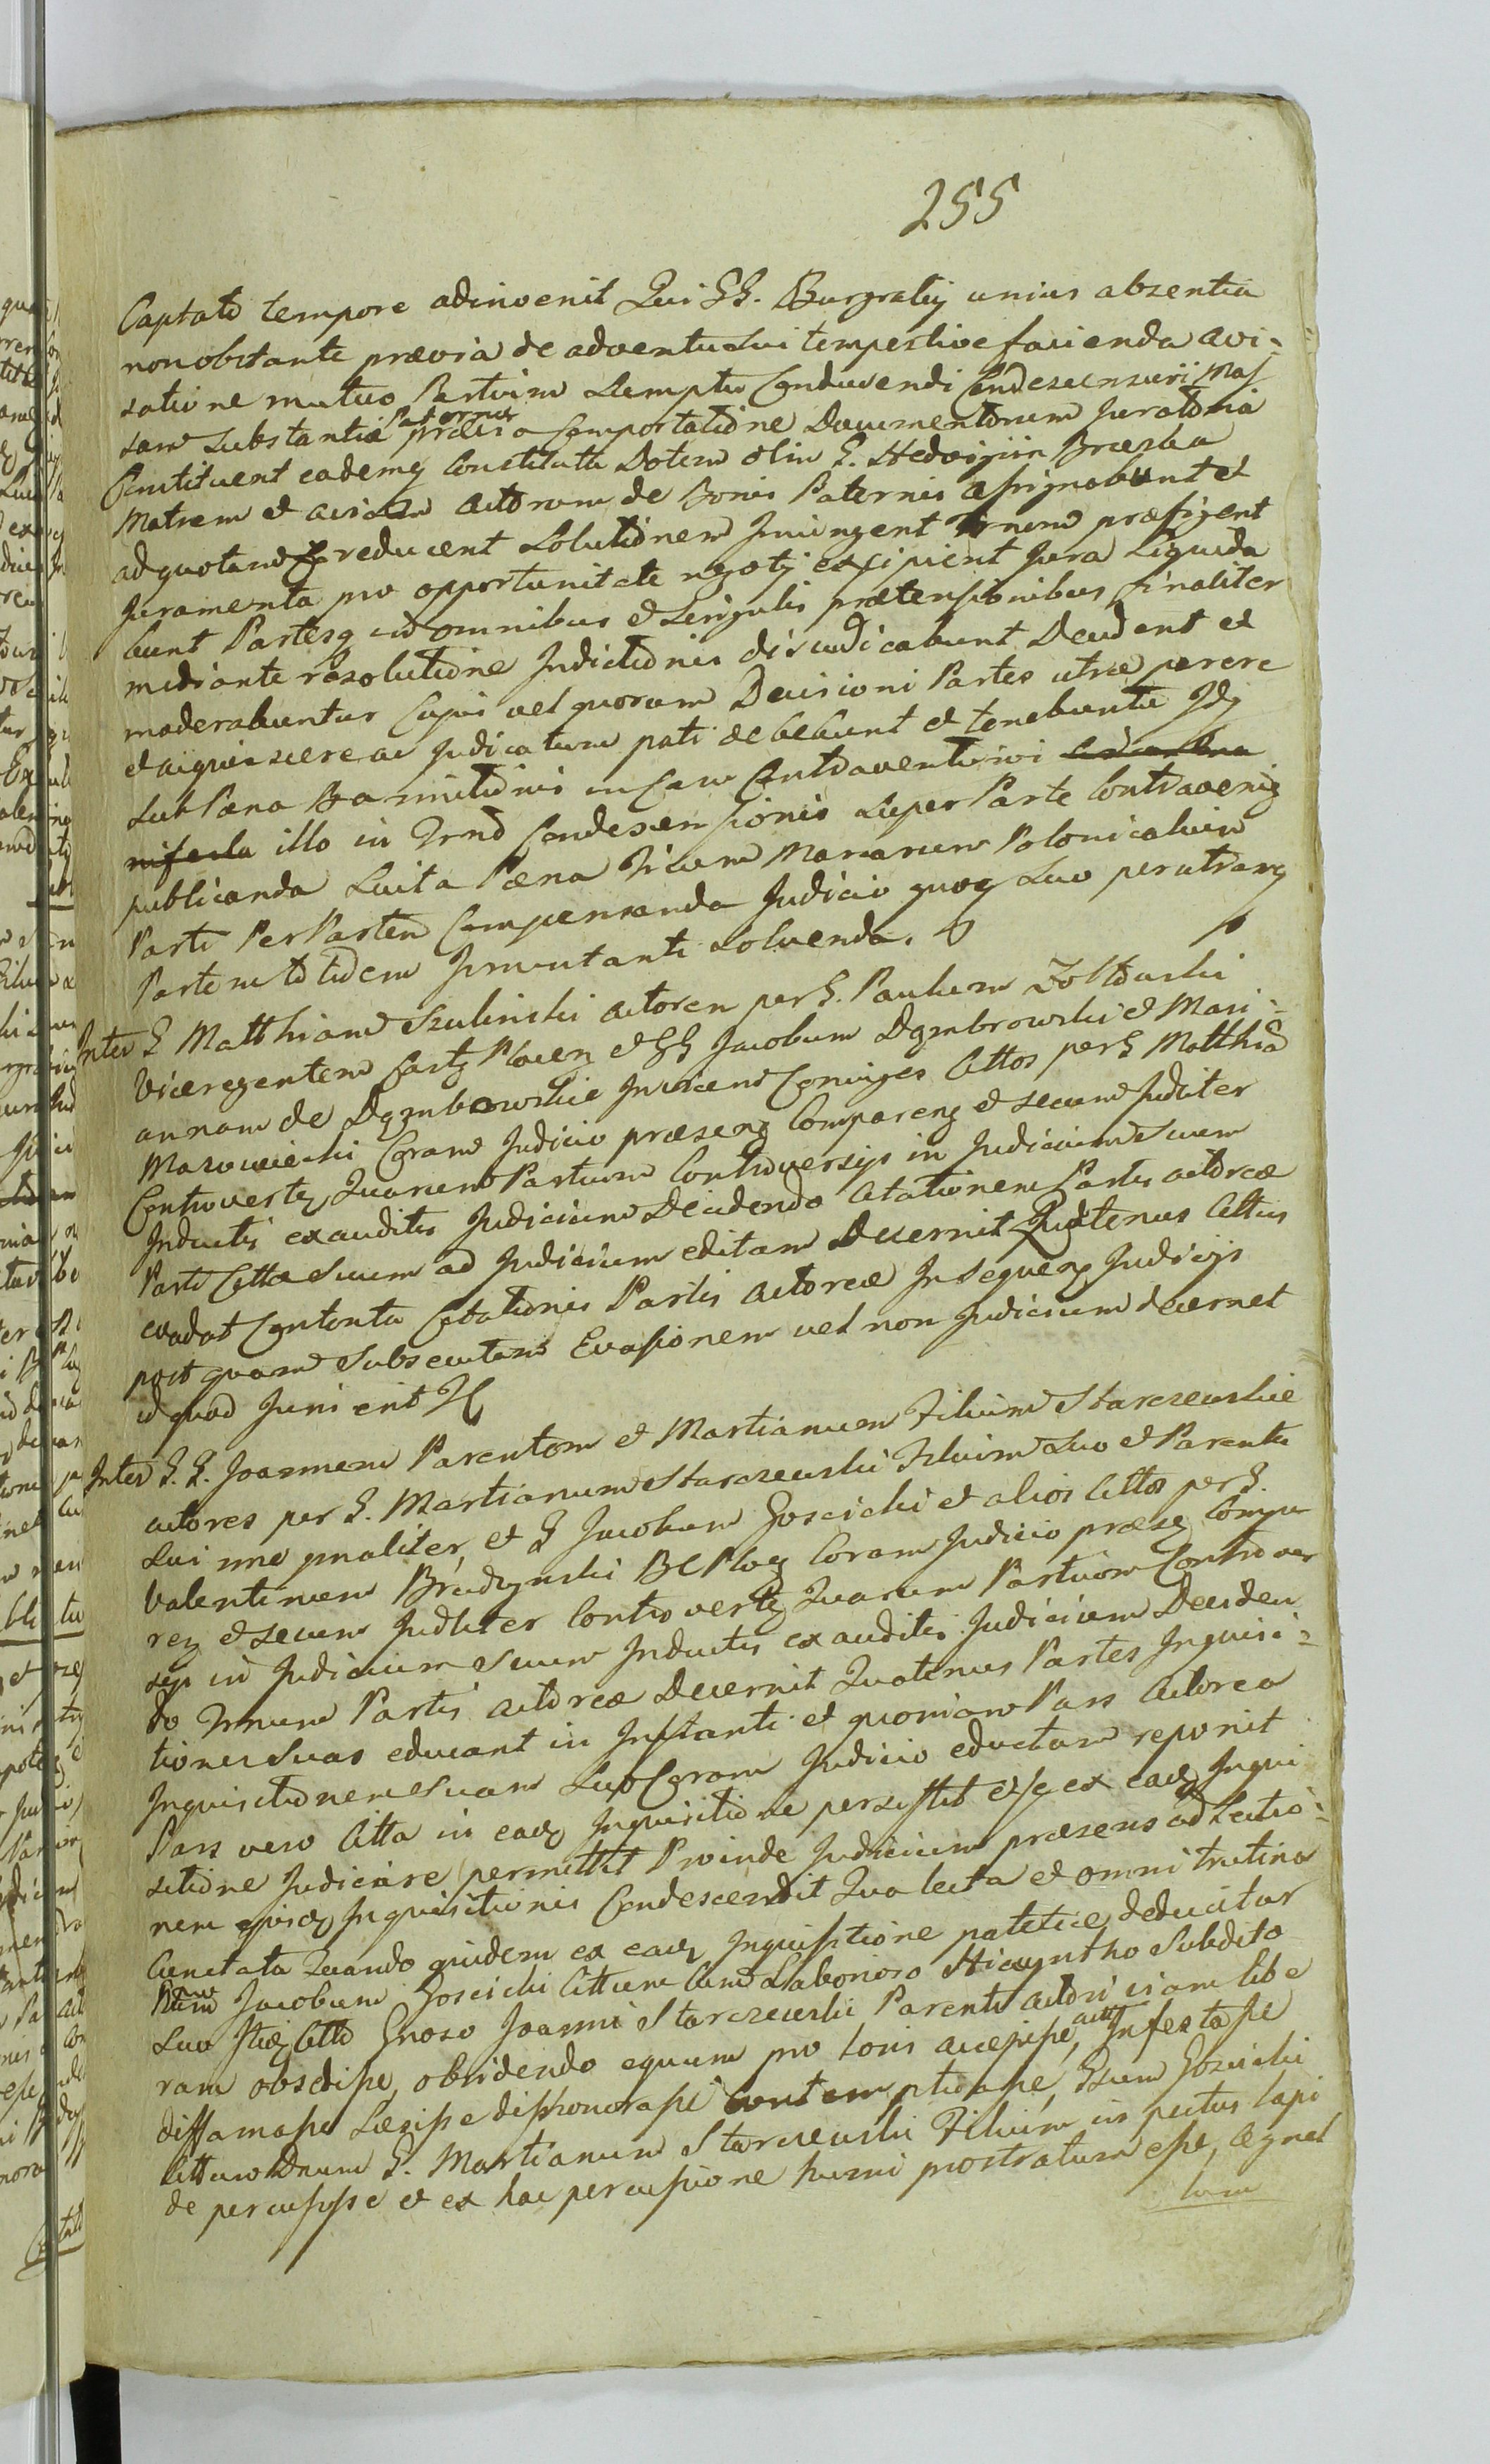 255
Captato tempore adinvenit Qui GG. Burgrabij unius absentia
nonobstante prævia de adventu sui tempestive facienda avi-
satione mutuo Partium sumptu Conducendi Condescensuri Mas
sam Substantiæ Paternæ prævia Comportatione Documentorum Juratoria
Constituent eademq Constituta Dotem olim G. Hedvigim Bræska
Matrem et aviam actorum de Bonis Paternis assignabunt et
ad quotam reducent Solutionem Iniungent Trnum præfigent
Juramenta pro opportunitate ngotij excipient Jura Liquida
bunt Partesq in omnibus et singulis prætensionibus finaliter
mediante resolutione Indictionis disiudicabunt Decident et
moderabuntur Cujus vel quorum Decisioni Partes utræ parere
et acquiescere ac Judicatum pati debebunt et tenebuntur Idq
sub Pæna Bannitionis in Casu Contraventionis
illo in Trno Condescensionis super Parte Contravenig
publicanda Luita Pæna Trium Marcarum Polonicalium
Parti Per Partem Compensanda Judicio quoq suo per utramq
Partem totidem Irruentanti solvenda.
Inter G Matthiam Szulinski actorem per G. Paulum Zoltowski
Viceregentem Castq Plocen et GG Jacobum Dąmbrowski et Mari-
annam de Dąmbrowskie Invicem Coniuges Cittos per G Matthiã
Mazowiecki Coram Judicio præsenq Comparenq et secum Judliter
Controvertq Quarum Partium Controversijs in Judicium Suum
Inductis exauditis Judicium Decidendo Citationem Partis actoreæ
Parti Cittæ Suum ad Judicium editam Decernit Quatenus Cittus
evadat Contenta Citationis Partis Actoreæ In sequenq Judicijs
post quam Subsecutam Evasionem vel non Judicium decernet
id quod Juris erit
Inter G. G. Joannem Parentem et Martianum Filium Starczewskie
actores per G. Martianum Starczewski Filium suo et Parentis
sui nne pnaliter, et G Jacobum Goscicki et alios Cittos per G.
Valentinum Brudzynski BCPlog Coram Judicio præsq Compa
renq et secum Judliter Controvertq Quarum Partium Controver
sijs in Judicium Suum Inductis exauditis Judicium Deciden
do Trnum Partis actoreæ Decernit Quatenus Partes Inquisi-
tiones Suas educant in Instanti et quoniam Pars Actorea
Inquisitionem Suam suo Coram Judicio eductam reponit
Pars vero Citta in eadq Inquisitione persistit et se ex eadq Inqui
sitione Judicare permittit Proinde Judicium præsens ad Lectio-
nem ejusdq Inquisitionis Condescendit Qua lecta et omni trutina
Cunctata Quando quidem ex eadq Inquisitione patetice deducitur
Jacobum Goscicki Cittum Cum Laborioso Hicyntho Subdito
suo Itidq Citto Gnoso Joanni Starczewski Parenti actori viam libe
ram obsedisse, obsidendo equum pro loris accepisse, Infestasse
diffamasse Læsisse dishonorasse contempticasse, Gsum Goscicki
Cittum Dnum G. Martianum Starczewski Filium in pectus lapi
de percussisse et ex hac percussione humi prostratum esse, Ægnel
tum